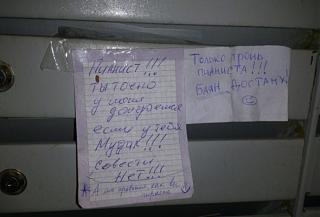 Пианист!!!
ты точно
у меня
доиграешся
если у тебя
Мудак!!!
совести
Нет!!!
А мне нравится как вы
играете
Только тронь
пианиста!!!
Блин достану.